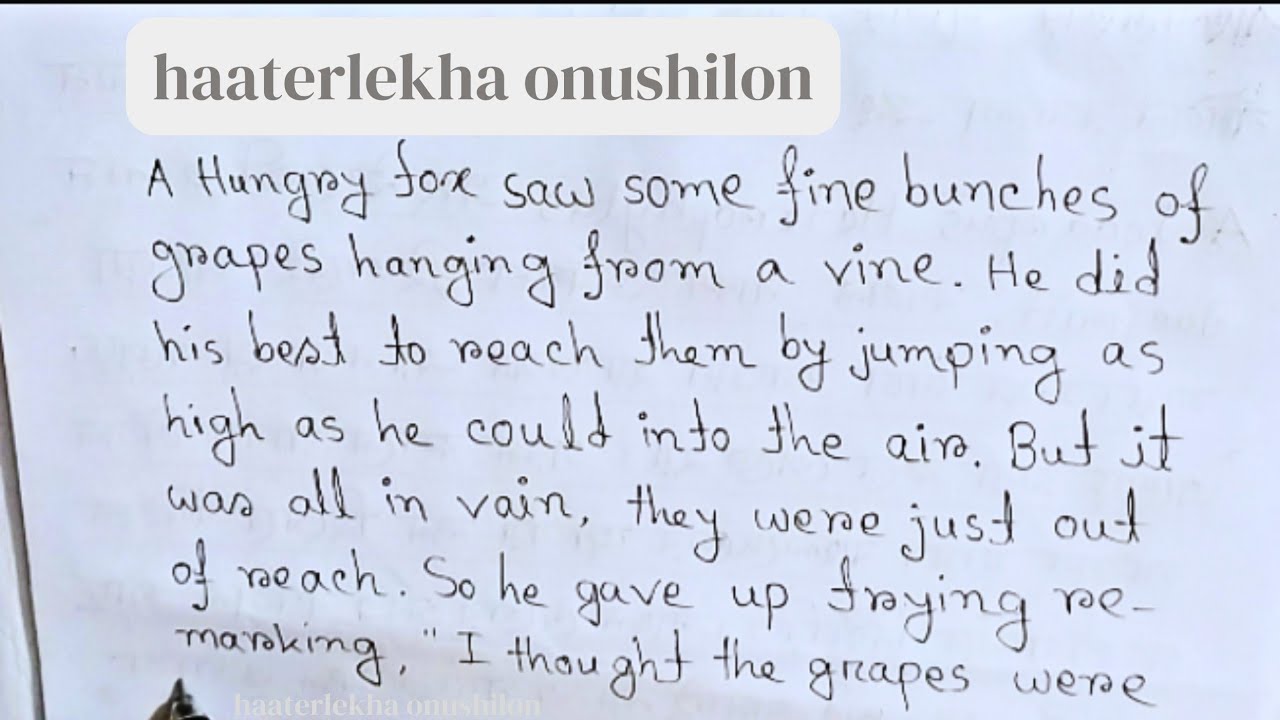 haaterlekha onushilon
A Hungry fox saw some fine bunches of
grapes hanging from a vine. He did
his best to reach them by jumping as
high as he could into the air. But it
was all in vain, they were just out
of reach. So he gave up trying re-
marking, "I thought the grapes were
haaterlekha onushilon